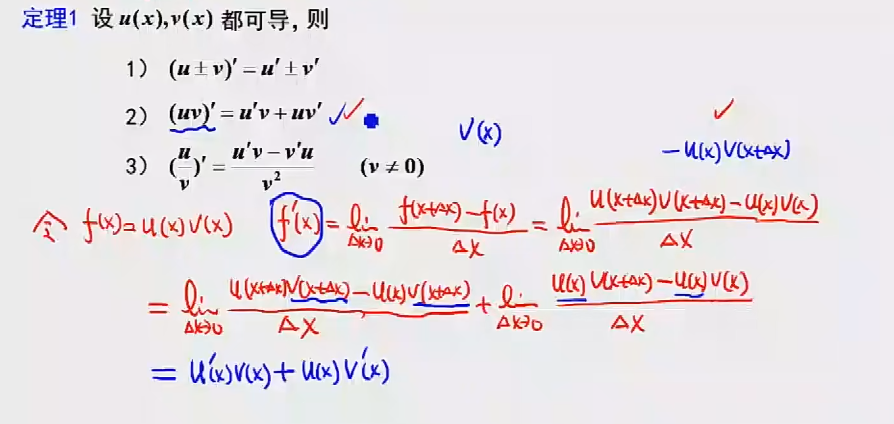 定理1 设 u(x),v(x) 都可导, 则
1) (u ± v)′ = u′ ± v′
2) (uv)′ = u′v + uv′ ✓✓
V(x)
✓
−U(x)V(x+Δx)
3) (u/v)′ = (u′v − v′u)/v² (v ≠ 0)
令 f(x)=U(x)V(x) f′(x)= lim_{Δx→0} (f(x+Δx)−f(x))/Δx = lim_{Δx→0} (U(x+Δx)V(x+Δx)−U(x)V(x))/Δx
= lim_{Δx→0} (U(x+Δx)V(x+Δx)−U(x)V(x+Δx))/Δx + lim_{Δx→0} (U(x)V(x+Δx)−U(x)V(x))/Δx
= U′(x)V(x)+U(x)V′(x)